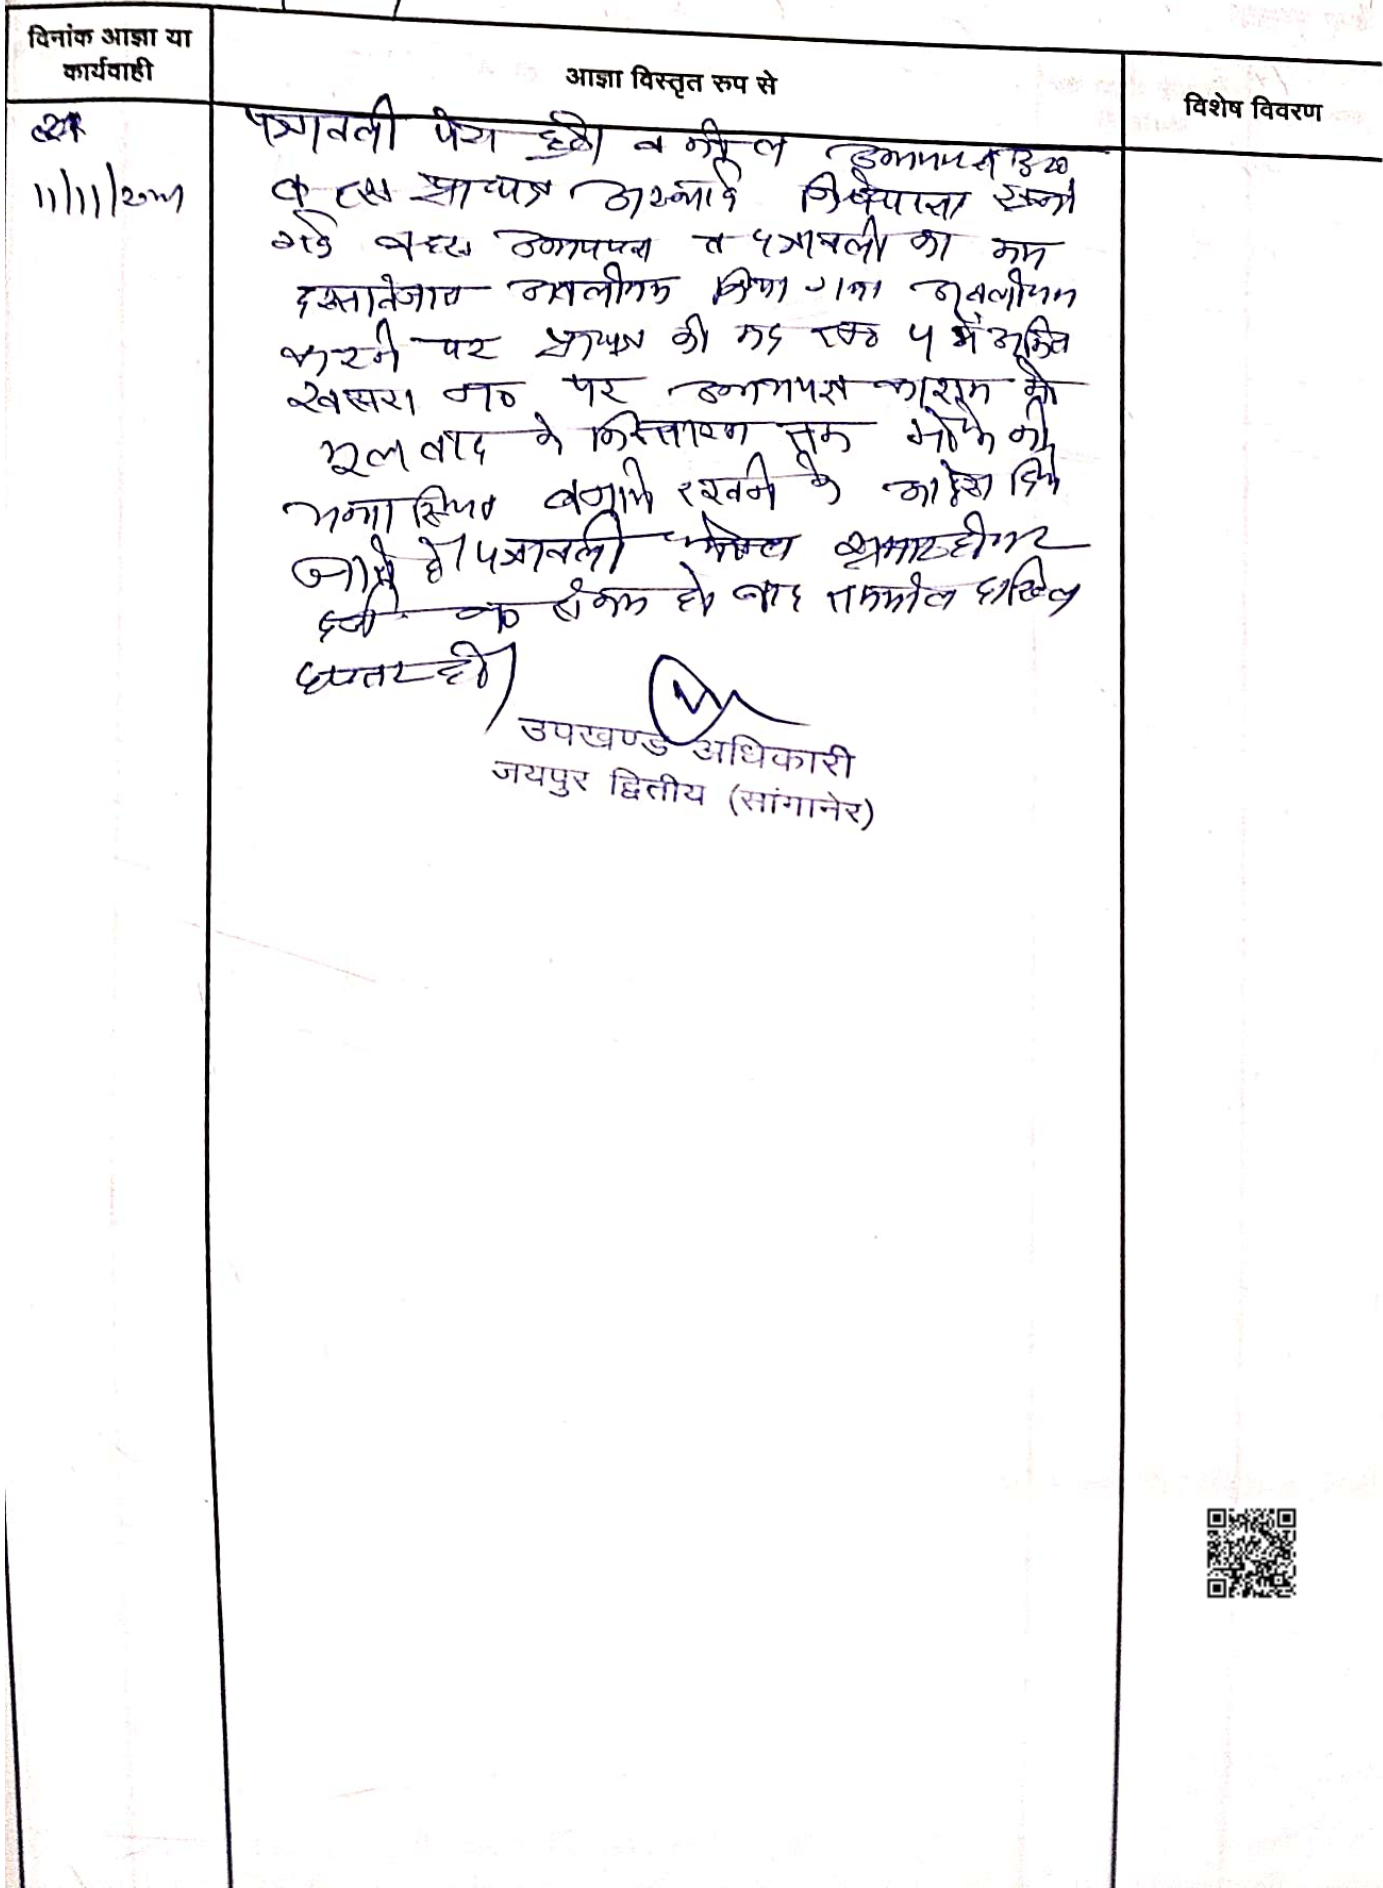 दिनांक आज्ञा या
कार्यवाही
आज्ञा विस्तृत रुप से
विशेष विवरण
पत्रावली पेश हुई। वकील उभयपक्ष
11/11/20
बहस प्रा०पत्र अस्थाई निषेधाज्ञा सुनी
गई बहस उभयपक्ष व पत्रावली का मय
दस्तावेजात अवलोकन किया गया अवलोकन
करने पर प्रा०पत्र की मद में अंकित
खसरा न० पर उभयपक्ष को
मूल वाद के निस्तारण तक मौके की
यथास्थिति बनाये रखने के आदेश दिये
जाते है। पत्रावली शुमार होकर
दर्ज न० से कम हो बाद तकमील दाखिल
दफ्तर हो।
उपखण्ड अधिकारी
जयपुर द्वितीय (सांगानेर)